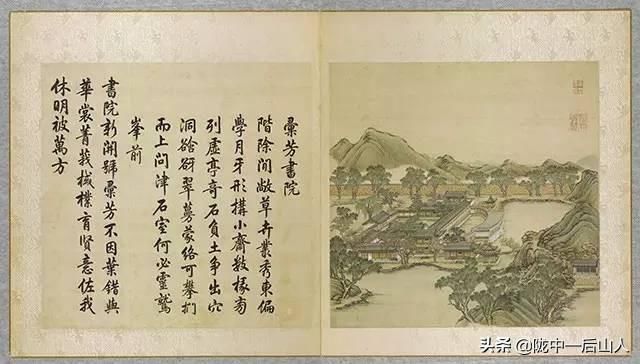 彙芳書院
階除閒敞草卉叢秀東偏
學月牙形搆小齋數椽旁
列虛亭奇石負土爭出穴
洞谽谺翠蔓蒙絡可攀捫
而上問津石室何必靈鷲
峯前
書院新開號彙芳不因葉錯與
華裳菁莪棫樸育賢意佐我
休明被萬方
头条 @陇中一后山人